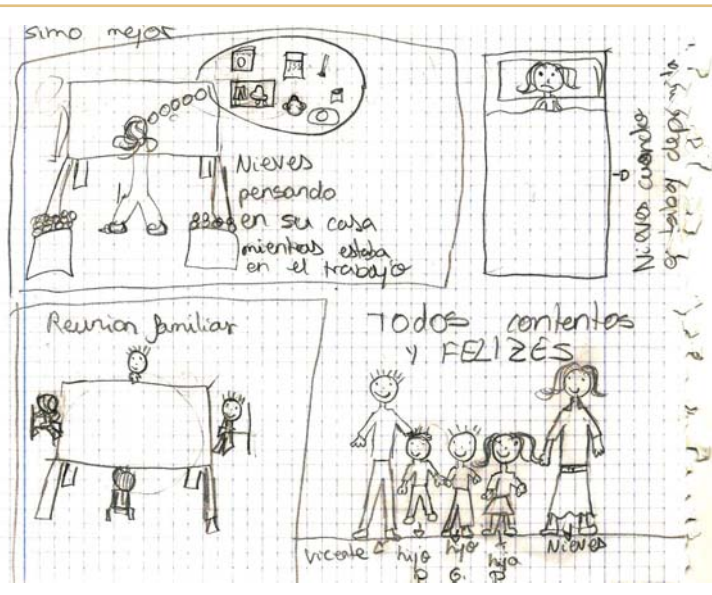 simo mejor
Nieves
pensando
en su casa
mientras estaba
en el trabajo
Nieves cuando
estaba deprimida
Reunion familiar
TODOS contentos
Y FELIZES
Vicente
hijo
hijo
G.
hija
Nieves